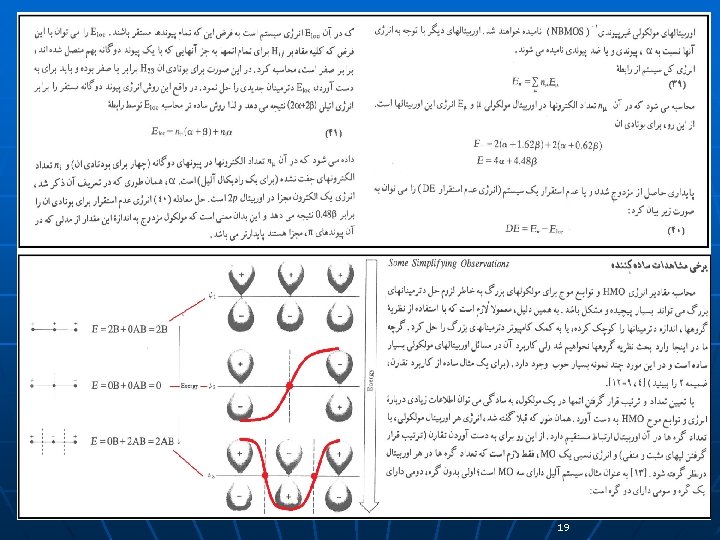 اوربیتالهای مولکولی غیرپیوندی (NBMOS) نامیده خواهند شد. اوربیتالهای دیگر با توجه به انرژی
آنها نسبت به α، پیوندی و یا ضد پیوندی نامیده می شوند.
انرژی کل سیستم از رابطهٔ
(۳۹)
محاسبه می شود که در آن nμ تعداد الکترونها در اوربیتال مولکولی μ و Eμ انرژی این اوربیتالها است.
از این رو، برای بوتادی ان
E = 2(α + 1.62β) + 2(α + 0.62β)
E = 4α + 4.48β
پایداری حاصل از مزدوج شدن و یا عدم استقرار یک سیستم (انرژی عدم استقرار DE) را می توان به
صورت زیر بیان کرد:
(۴۰)
که در آن Eloc انرژی سیستم است به فرض این که تمام پیوندها مستقر باشند. Eloc را می توان با این
فرض که کلیه مقادیر Hij برای تمام اتمها به جز آنهایی که با یک پیوند دوگانه بهم متصل شده اند،
برابر صفر است، محاسبه کرد. در این صورت برای بوتادی ان H23 برابر با صفر بوده و باید برای به
دست آوردن Eloc دترمینان جدیدی را حل نمود. در واقع این روش انرژی پیوند دوگانه مستقر را برابر
انرژی اتیلن (2α+2β) نتیجه می دهد و لذا روش ساده تر محاسبه Eloc توسط رابطهٔ
(۴۱)
داده می شود که در آن تعداد الکترونها در پیوندهای دوگانه (چهار برای بوتادی ان) و تعداد
الکترونهای جفت نشده (برای یک رادیکال آلیل) است. α، همان طوری که در تعریف آن ذکر شد،
انرژی یک الکترون مجزا در اوربیتال 2p است. حل معادله (۴۰) انرژی عدم استقرار برای بوتادی ان را
برابر 0.48β نتیجه می دهد و این بدان معنی است که مولکول مزدوج به اندازهٔ این مقدار از مدلی که در
آن پیوندهای π، مجزا هستند پایدارتر می باشد.
برخی مشاهدات ساده کننده Some Simplifying Observations
محاسبه مقادیر انرژی HMO و توابع موج برای مولکولهای بزرگ به خاطر لزوم حل دترمینانهای
بزرگ می تواند بسیار پیچیده و مشکل باشد. به همین دلیل، معمولا لازم است که با استفاده از نظریهٔ
گروهها، اندازه دترمینانها را کوچک کرده، یا به کمک کامپیوتر دترمینانهای بزرگ را حل کرد. گرچه
ما در اینجا وارد بحث نظریه گروهها نخواهیم شد ولی کاربرد آن در مسائل اوربیتالهای مولکولی بسیار
ساده است و در این مورد چند نمونه بسیار خوب وجود دارد. (برای یک مثال ساده از کاربرد تقارن،
ضمیمه ۲ را ببینید
با تعیین تعداد و ترتیب قرار گرفتن اتمها در یک مولکول، به سادگی می توان اطلاعات زیادی دربارهٔ
انرژی و توابع موج HMO به دست آورد. همان طور که قبلا گفته شد، انرژی هر اوربیتال مولکولی، با
تعداد گره ها در آن اوربیتال ارتباط مستقیم دارد. از این رو برای به دست آوردن تقارن (ترتیب قرار
گرفتن لپهای مثبت و منفی) و انرژی نسبی یک MO، فقط لازم است که تعداد گره ها در هر اوربیتال
در نظر گرفته شود. [۱۳] به عنوان مثال، سیستم آلیل دارای سه MO است؛ اولی بدون گره، دومی دارای
یک گره و سومی دارای دو گره است:
E = 2B + 0AB = 2B
E = 0B + 0AB = 0
E = 0B + 2AB = 2AB
Energy
Energy
19